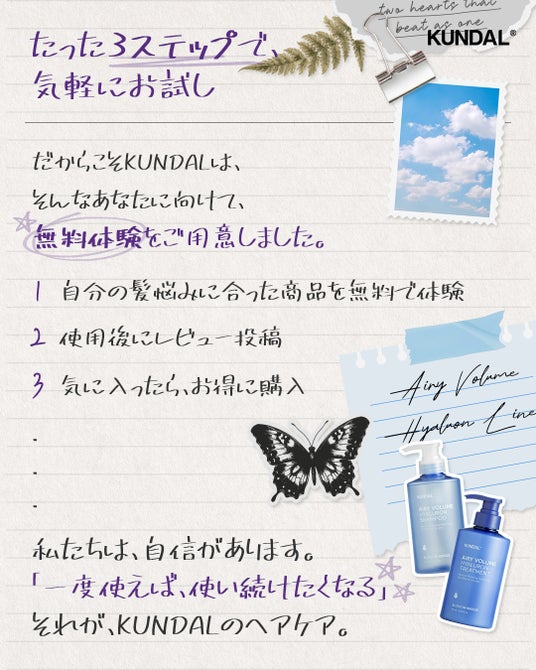 two hearts that
beat as one
KUNDAL®
たった3ステップで、
気軽にお試し
だからこそKUNDALは、
そんなあなたに向けて、
無料体験をご用意しました。
1 自分の髪悩みに合った商品を無料で体験
2 使用後にレビュー投稿
3 気に入ったら、お得に購入
.
.
.
Airy Volume
Hyaluron Line
KUNDAL
AIRY VOLUME
HYALURON
SHAMPOO
KUNDAL
AIRY VOLUME
HYALURON
TREATMENT
私たちは、自信があります。
「一度使えば、使い続けたくなる」
それが、KUNDALのヘアケア。